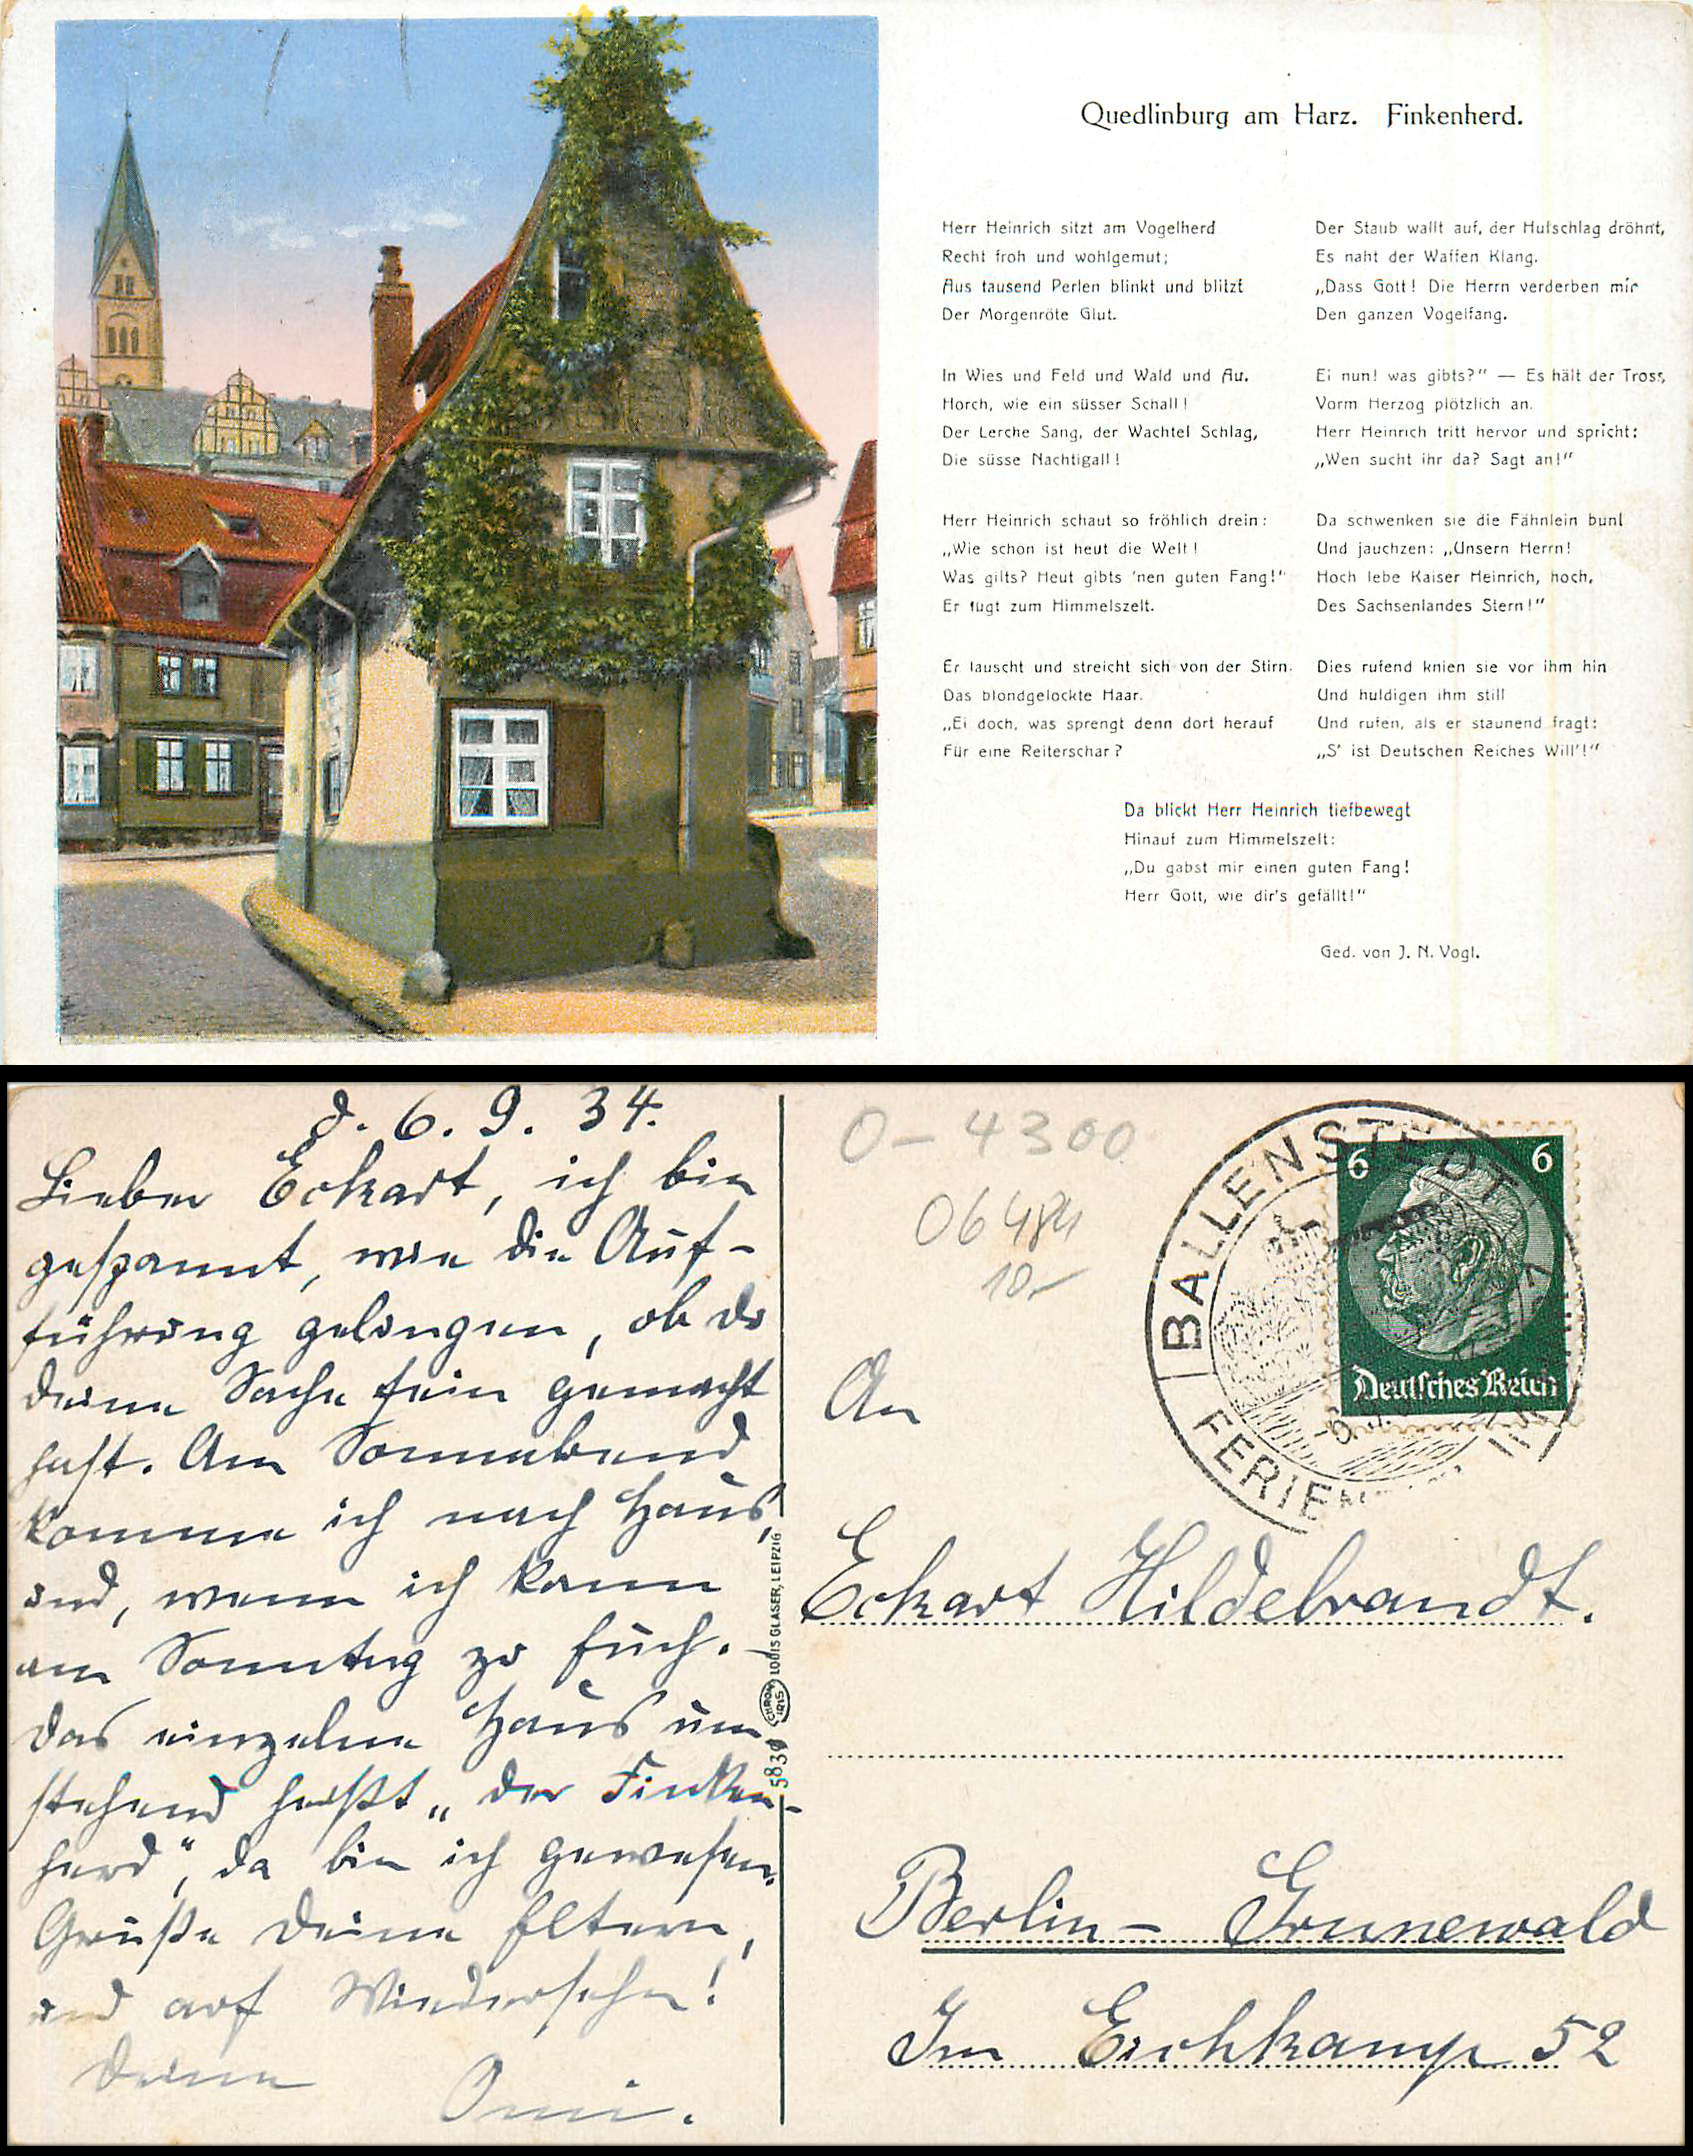 Quedlinburg am Harz. Finkenherd.
Herr Heinrich sitzt am Vogelherd
Recht froh und wohlgemut;
Aus tausend Perlen blinkt und blitzt
Der Morgenröte Glut.
In Wies und Feld und Wald und Au,
Horch, wie ein süsser Schall!
Der Lerche Sang, der Wachtel Schlag,
Die süsse Nachtigall!
Herr Heinrich schaut so fröhlich drein:
„Wie schon ist heut die Welt!
Was gilts? Heut gibts 'nen guten Fang!"
Er lugt zum Himmelszelt.
Er lauscht und streicht sich von der Stirn.
Das blondgelockte Haar.
„Ei doch, was sprengt denn dort herauf
Für eine Reiterschar?
Der Staub wallt auf, der Hufschlag dröhnt,
Es naht der Waffen Klang.
„Dass Gott! Die Herrn verderben mir
Den ganzen Vogelfang.
Ei nun! was gibts?" — Es hält der Tross,
Vorm Herzog plötzlich an.
Herr Heinrich tritt hervor und spricht:
„Wen sucht ihr da? Sagt an!"
Da schwenken sie die Fähnlein bunt
Und jauchzen: „Unsern Herrn!
Hoch lebe Kaiser Heinrich, hoch,
Des Sachsenlandes Stern!"
Dies rufend knien sie vor ihm hin
Und huldigen ihm still
Und rufen, als er staunend fragt:
„S' ist Deutschen Reiches Will'!"
Da blickt Herr Heinrich tiefbewegt
Hinauf zum Himmelszelt:
„Du gabst mir einen guten Fang!
Herr Gott, wie dir's gefällt!"
Ged. von J. N. Vogl.
d. 6. 9. 34.
Lieber Eckart, ich bin
gespannt, wie die Auf-
führung gelungen, ob du
deine Sache fein gemacht
hast. Am Sonnabend
komme ich nach Haus,
und, wenn ich kann
am Sonntag zu Euch. –
Das einzelne Haus um
stehend heißt „der Finken-
herd", da bin ich gewesen.
Grüße Deine Eltern,
und auf Wiedersehn!
Deine Omi.
5839 CHROM IRIS LOUIS GLASER, LEIPZIG
O-4300
06484
10.-
BALLENSTEDT
FERIEN
6 6
Deutsches Reich
An
Eckart Hildebrandt.
Berlin - Grunewald
Im Eichkamp 52